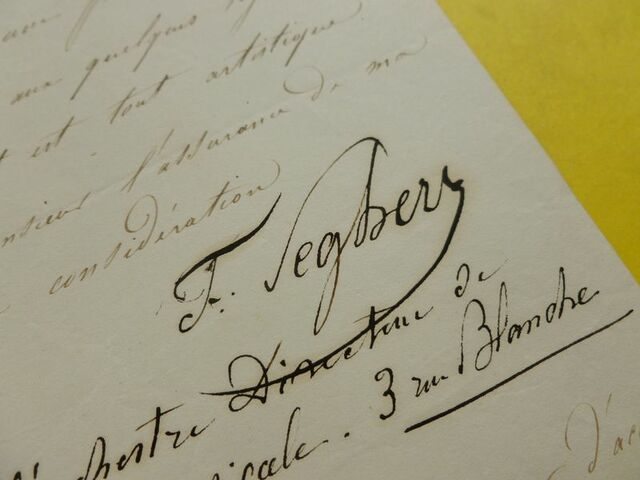 aux quelques
est tout artistique
l'assurance de ma
considération
F. Seghers
Directeur de
l'orchestre
3 rue Blanche